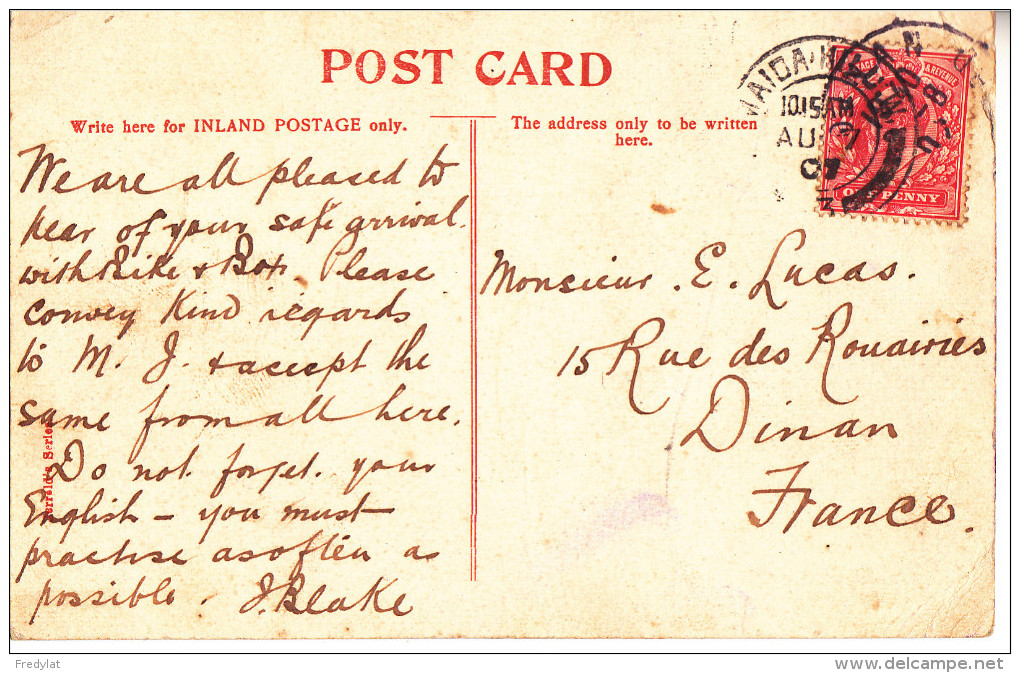 POST CARD
Write here for INLAND POSTAGE only.
The address only to be written
here.
We are all pleased to
hear of your safe arrival
with Bike & Box. Please
convey Kind regards
to M. J. & accept the
same from all here.
Do not forget your
English – you must
practise as often as
possible. J. Blake
Monsieur . E. Lucas.
15 Rue des Rouairies
Dinan
France.
MAIDA
10.15AM
AU 7
07
& REVENUE
ONE PENNY
Series
Fredylat
www.delcampe.net